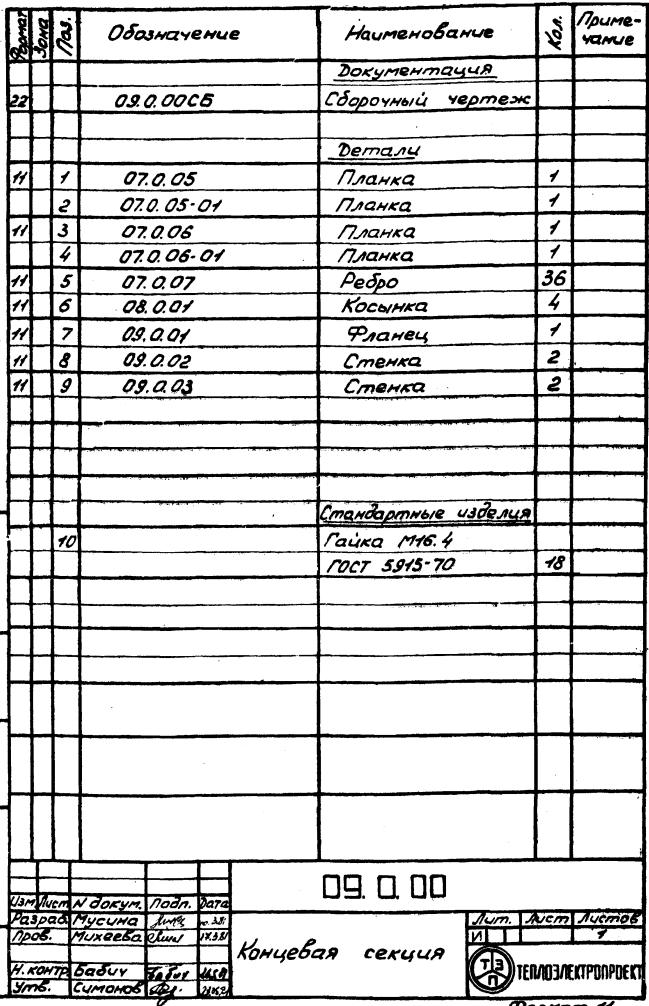 Формат Зона Поз. Обозначение Наименование Кол. Приме-
чание
Документация
22 09.0.00СБ Сборочный чертеж
Детали
11 1 07.0.05 Планка 1
2 07.0.05-01 Планка 1
11 3 07.0.06 Планка 1
4 07.0.06-01 Планка 1
11 5 07.0.07 Ребро 36
11 6 08.0.01 Косынка 4
11 7 09.0.01 Фланец 1
11 8 09.0.02 Стенка 2
11 9 09.0.03 Стенка 2
Стандартные изделия
10 Гайка М16.4
ГОСТ 5915-70 18
09.0.00
Изм Лист N докум. Подп. Дата
Разраб. Мусина
Пров. Михеева
Н.контр. Бабич
Утв. Симонов
Концевая секция
Лит. Лист Листов
И 1
ТЭП ТЕПЛОЭЛЕКТРОПРОЕКТ
Формат 11